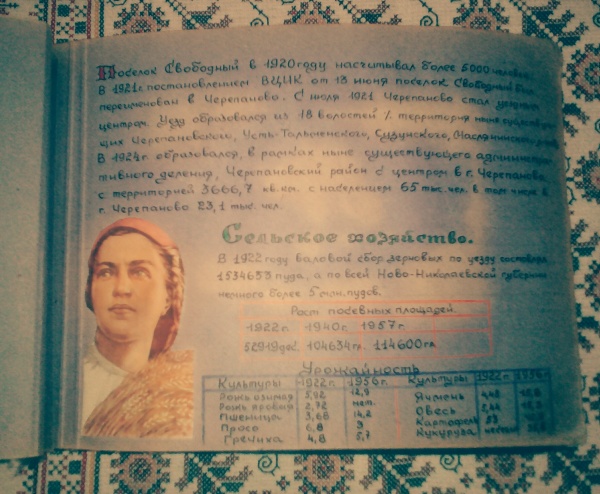 Поселок Свободный в 1920 году насчитывал более 5000 человек.
В 1921г. постановлением ВЦИК от 13 июня поселок Свободный был
переименован в Черепаново. С июля 1921 Черепаново стал уездным
центром. Уезд образовался из 18 волостей / территория ныне существую-
щих Черепановского, Усть-Тальменского, Сузунского, Маслянинского
В 1924г. образовался, в рамках ныне существующего администра-
тивного деления, Черепановский район с центром в г. Черепаново
с территорией 3666,7 кв.км. с населением 65 тыс. чел. в том числе в
г. Черепаново 23,1 тыс. чел.
Сельское хозяйство.
В 1922 году валовой сбор зерновых по уезду составлял
1534653 пуда, а по всей Ново-Николаевской губернии
немного более 5 млн. пудов.
Рост посевных площадей.
1922г. 1940г. 1957г.
52919дес. 104634га 114600га
Урожайность
Культуры 1922г. 1956г. Культуры 1922г. 1956г.
Рожь озимая 5,92 12,9 Ячмень 4,48
Рожь яровая 2,72 нет. Овес
Пшеница 3,68 14,2 Картофель 53
Просо 6,8 9 Кукуруза
Гречиха 4,8 5,7